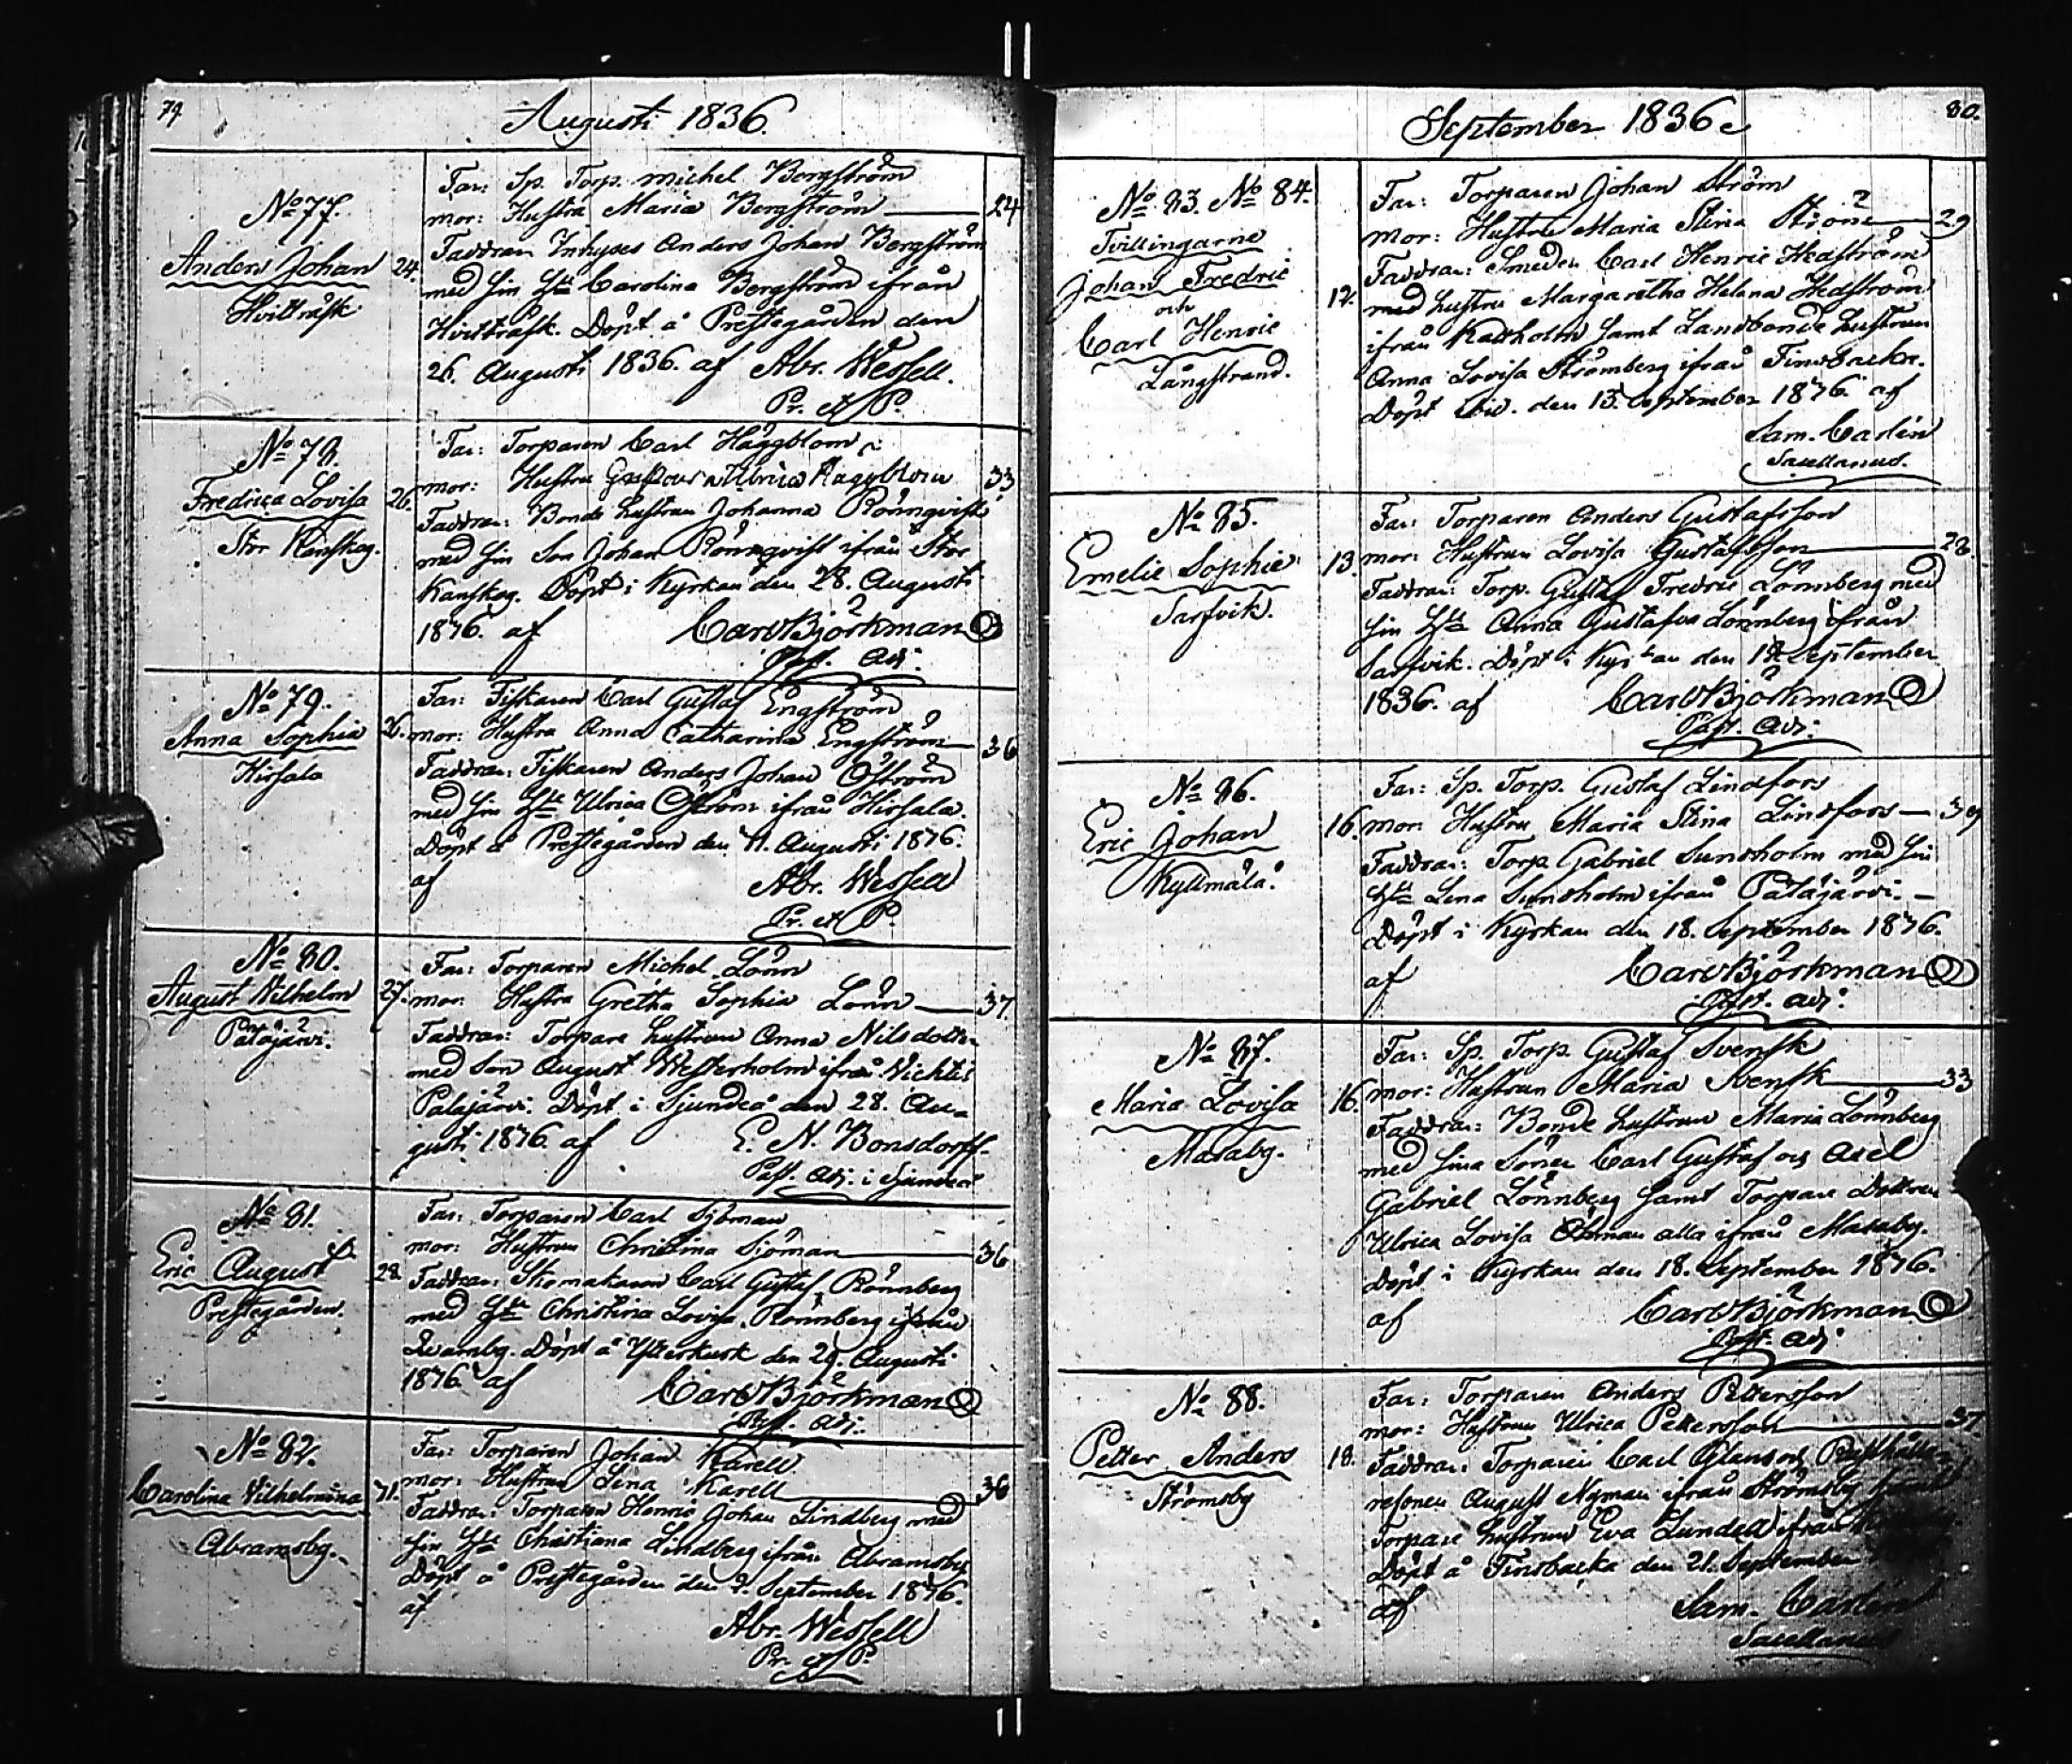 79.
Augusti 1836.
No 77.
Anders Johan
Hvitträsk
24.
Far: Sp. Torp. Michel Bergström
mor: Hustru Maria Bergström 24
Faddrar: Inhyses Anders Johan Bergström
med sin Hu Carolina Bergström ifrån
Hvitträsk. Döpt å Prestegården den
26. Augusti 1836. af Abr. Wessell.
Pr. et P.
No 78.
Fredrica Lovisa
Stor Kanskog.
26.
Far: Torparen Carl Häggblom
mor: Hustru Gustava Ulrica Häggblom 33
Faddrar: Bonde hustrun Johanna Rönnqvist
med sin Son Johan Rönnqvist ifrån Stor
Kanskog. Döpt i Kyrkan den 28. Augusti
1836. af Carl Björkman
Past. Adj.
No 79.
Anna Sophia
Hirsala
26.
Far: Fiskaren Carl Gustaf Engström
mor: Hustru Anna Catharina Engström 36
Faddrar: Fiskaren Anders Johan Öström
med sin Hu Ulrica Öström ifrån Hirsala.
Döpt å Prestegården den 31. Augusti 1836.
af Abr. Wessell
Pr. et P.
No 80.
August Wilhelm
Palajärvi.
27.
Far: Torparen Michel Lönn
mor: Hustru Gretha Sophia Lönn 37.
Faddrar: Torpare hustrun Anna Nilsdotter
med Son August Westerholm ifrån Wichtis
Palajärvi. Döpt i Sjundeå den 28. Au-
gusti 1836. af E. N. Bonsdorff.
Past. Adj. i Sjundeå
No 81.
Eric August
Prestegården.
28.
Far: Torparen Carl Sjöman
mor: Hustrun Christina Sjöman 36
Faddrar: Skomakaren Carl Gustaf Rönnberg
med Hu Christina Lovisa Rönnberg ifrån
Qvarnby. Döpt å Ytterkurk den 29. Augusti
1836. af Carl Björkman
Past. Adj.
No 82.
Carolina Vilhelmina
Abramsby.
31.
Far: Torparen Johan Karell
mor: Hustrun Lena Karell 36
Faddrar: Torparen Henric Johan Lindberg med
sin Hu Christiana Lindberg ifrån Abramsby
Döpt å Prestegården den 2. September 1836.
af
Abr. Wessell
Pr. et P.
80.
September 1836
No 83. No 84.
Tvillingarne
Johan Fredric
och
Carl Henric
Långstrand.
12.
Far: Torparen Johan Ström
mor: Hustru Maria Stina Ström 29
Faddrar: Smeden Carl Henric Hedström
med hustru Margaretha Helena Hedström
ifrån samt Landbonde hustrun
Anna Lovisa Strömberg ifrån Finsbacka.
Döpt ibid. den 13. September 1836. af
Sam. Carlén
Sacellanus.
No 85.
Emelie Sophie
Sarfvik.
13.
Far: Torparen Anders Gustafsson
mor: Hustrun Lovisa Gustafsson 28.
Faddrar: Torp. Gustaf Fredric Lönnberg med
sin Hu Anna Gustafva Lönnberg ifrån
Sarfvik. Döpt i Kyrkan den 18 September
1836. af Carl Björkman
Past. Adj.
No 86.
Eric Johan
Kyllmälä.
16.
Far: Sp. Torp. Gustaf Lindfors
mor: Hustru Maria Stina Lindfors 39
Faddrar: Torp. Gabriel Sundholm med sin
Hu Lena Sundholm ifrån Palajärvi.
Döpt i Kyrkan den 18. September 1836.
af Carl Björkman
Past. Adj.
No 87.
Maria Lovisa
Masaby.
16.
Far: Sp. Torp. Gustaf Svensk
mor: Hustrun Maria Svensk 33
Faddrar: Bonde hustrun Maria Lönnberg
med sina Söner Carl Gustaf och Axel
Gabriel Lönnberg samt Torpare Dottren
Ulrica Lovisa Öhman alla ifrån Masaby.
Döpt i Kyrkan den 18. September 1836.
af Carl Björkman
Past. Adj.
No 88.
Petter Anders
Strömsby
18.
Far: Torparen Anders Pettersson
mor: Hustrun Ulrica Pettersson 37.
Faddrar: Torparen Carl Glans och
resonen August Nyman ifrån Strömsby samt
Torpare hustrun Eva Lundell ifrån
Döpt å Finsbacka den 21. September
af Sam. Carlén
Sacellanus